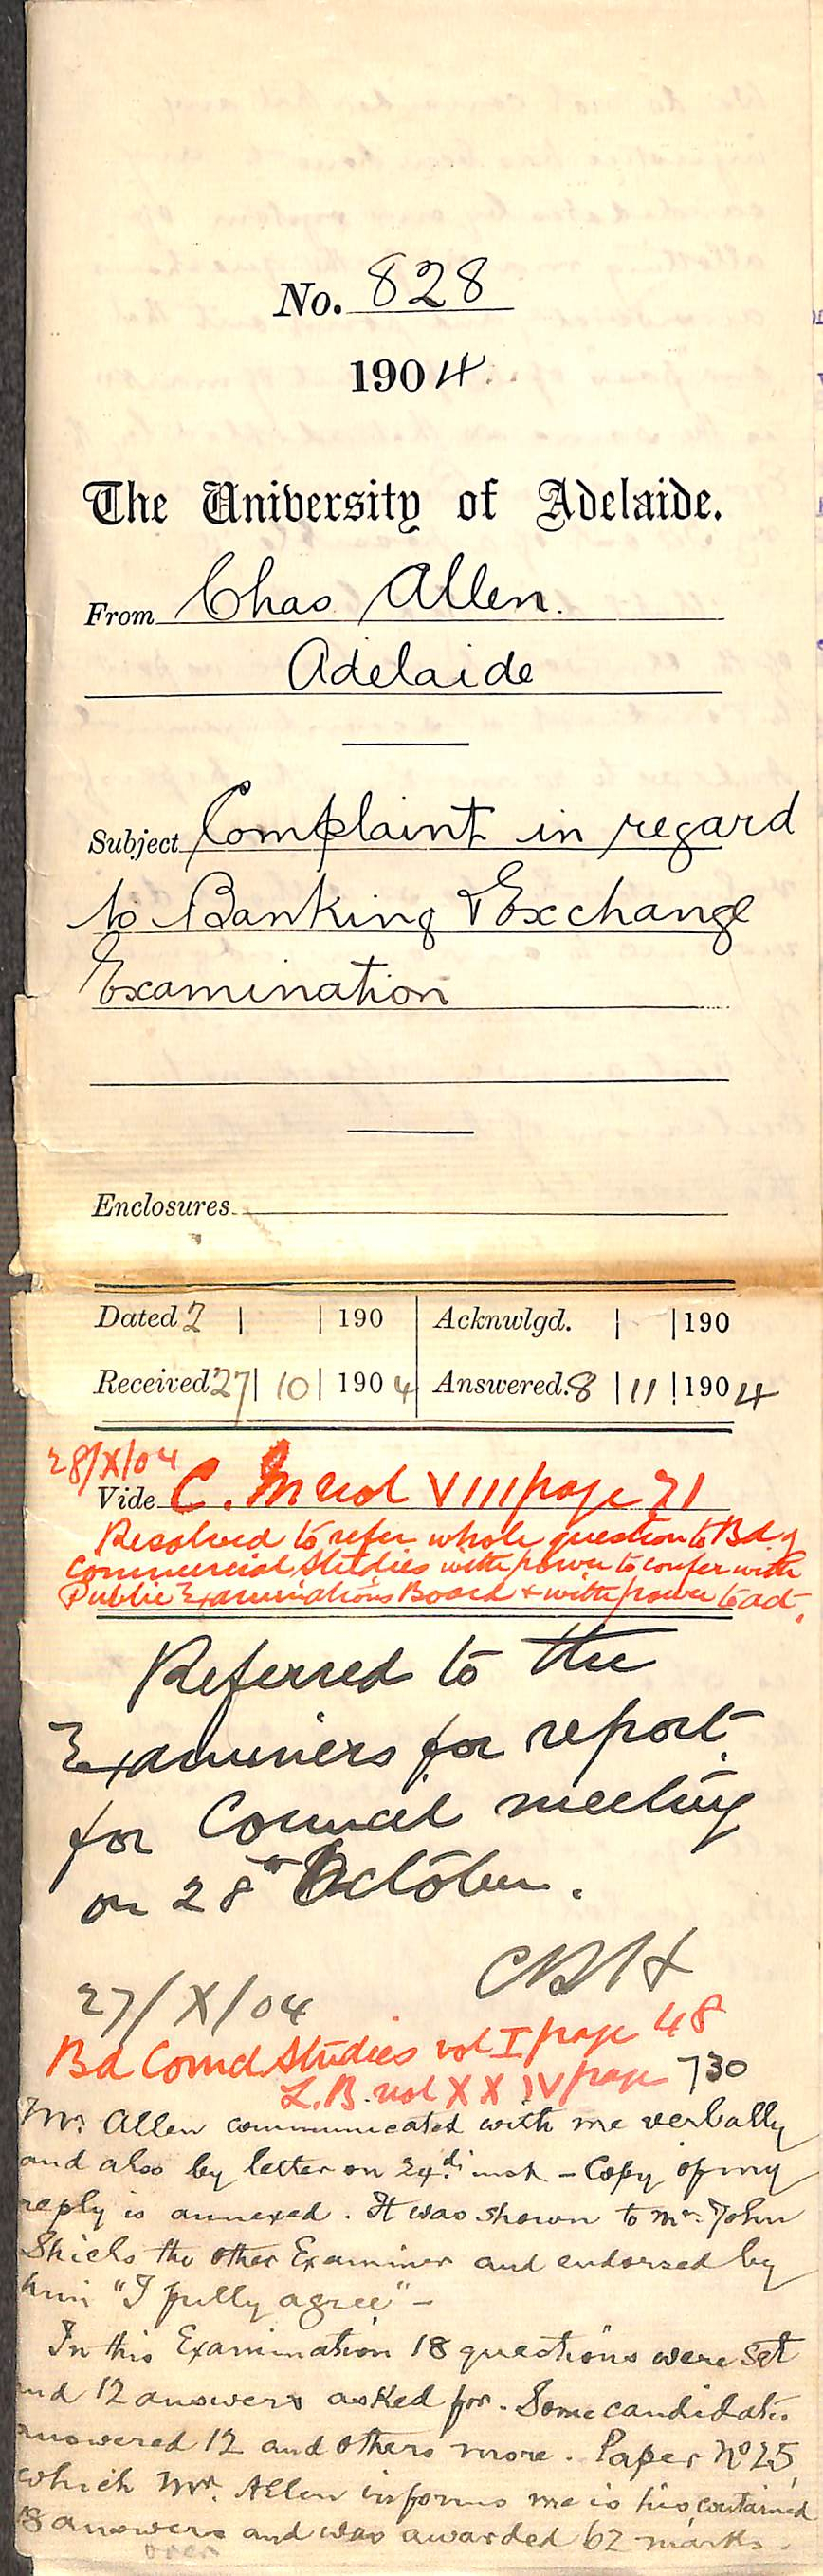 No. 828
1904.
The University of Adelaide.
From Chas Allen.
Adelaide
Subject Complaint in regard
to Banking & Exchange
Examination
Enclosures
Dated 2 | | 190 Acknwlgd. | | 190
Received 27 | 10 | 1904 Answered. 8 | 11 | 1904
28/X/04
Vide C. M vol VIII page 71
Resolved to refer whole question to Bd of
Commercial Studies with power to confer with
Public Examinations Board & with power to act.
Referred to the
Examiners for report
for Council meeting
on 28th October.
27/X/04
Bd Comcl Studies vol I page 48
L.B. vol XXIV page 730
Mr. Allen communicated with me verbally
and also by letter on 24th inst - Copy of my
reply is annexed. It was shown to Mr. John
Shiels the other Examiner and endorsed by
him "I fully agree" -
In this Examination 18 questions were set
and 12 answers asked for. Some candidates
answered 12 and others more. Paper No 25
which Mr. Allen informs me is his contained
18 answers and was awarded 62 marks.
over